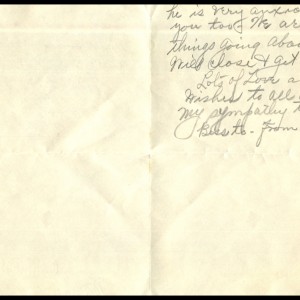 he is very anxio
you too. We are
things going abou
Will close & get
Lots of Love a
Wishes to all
my sympathy t
from